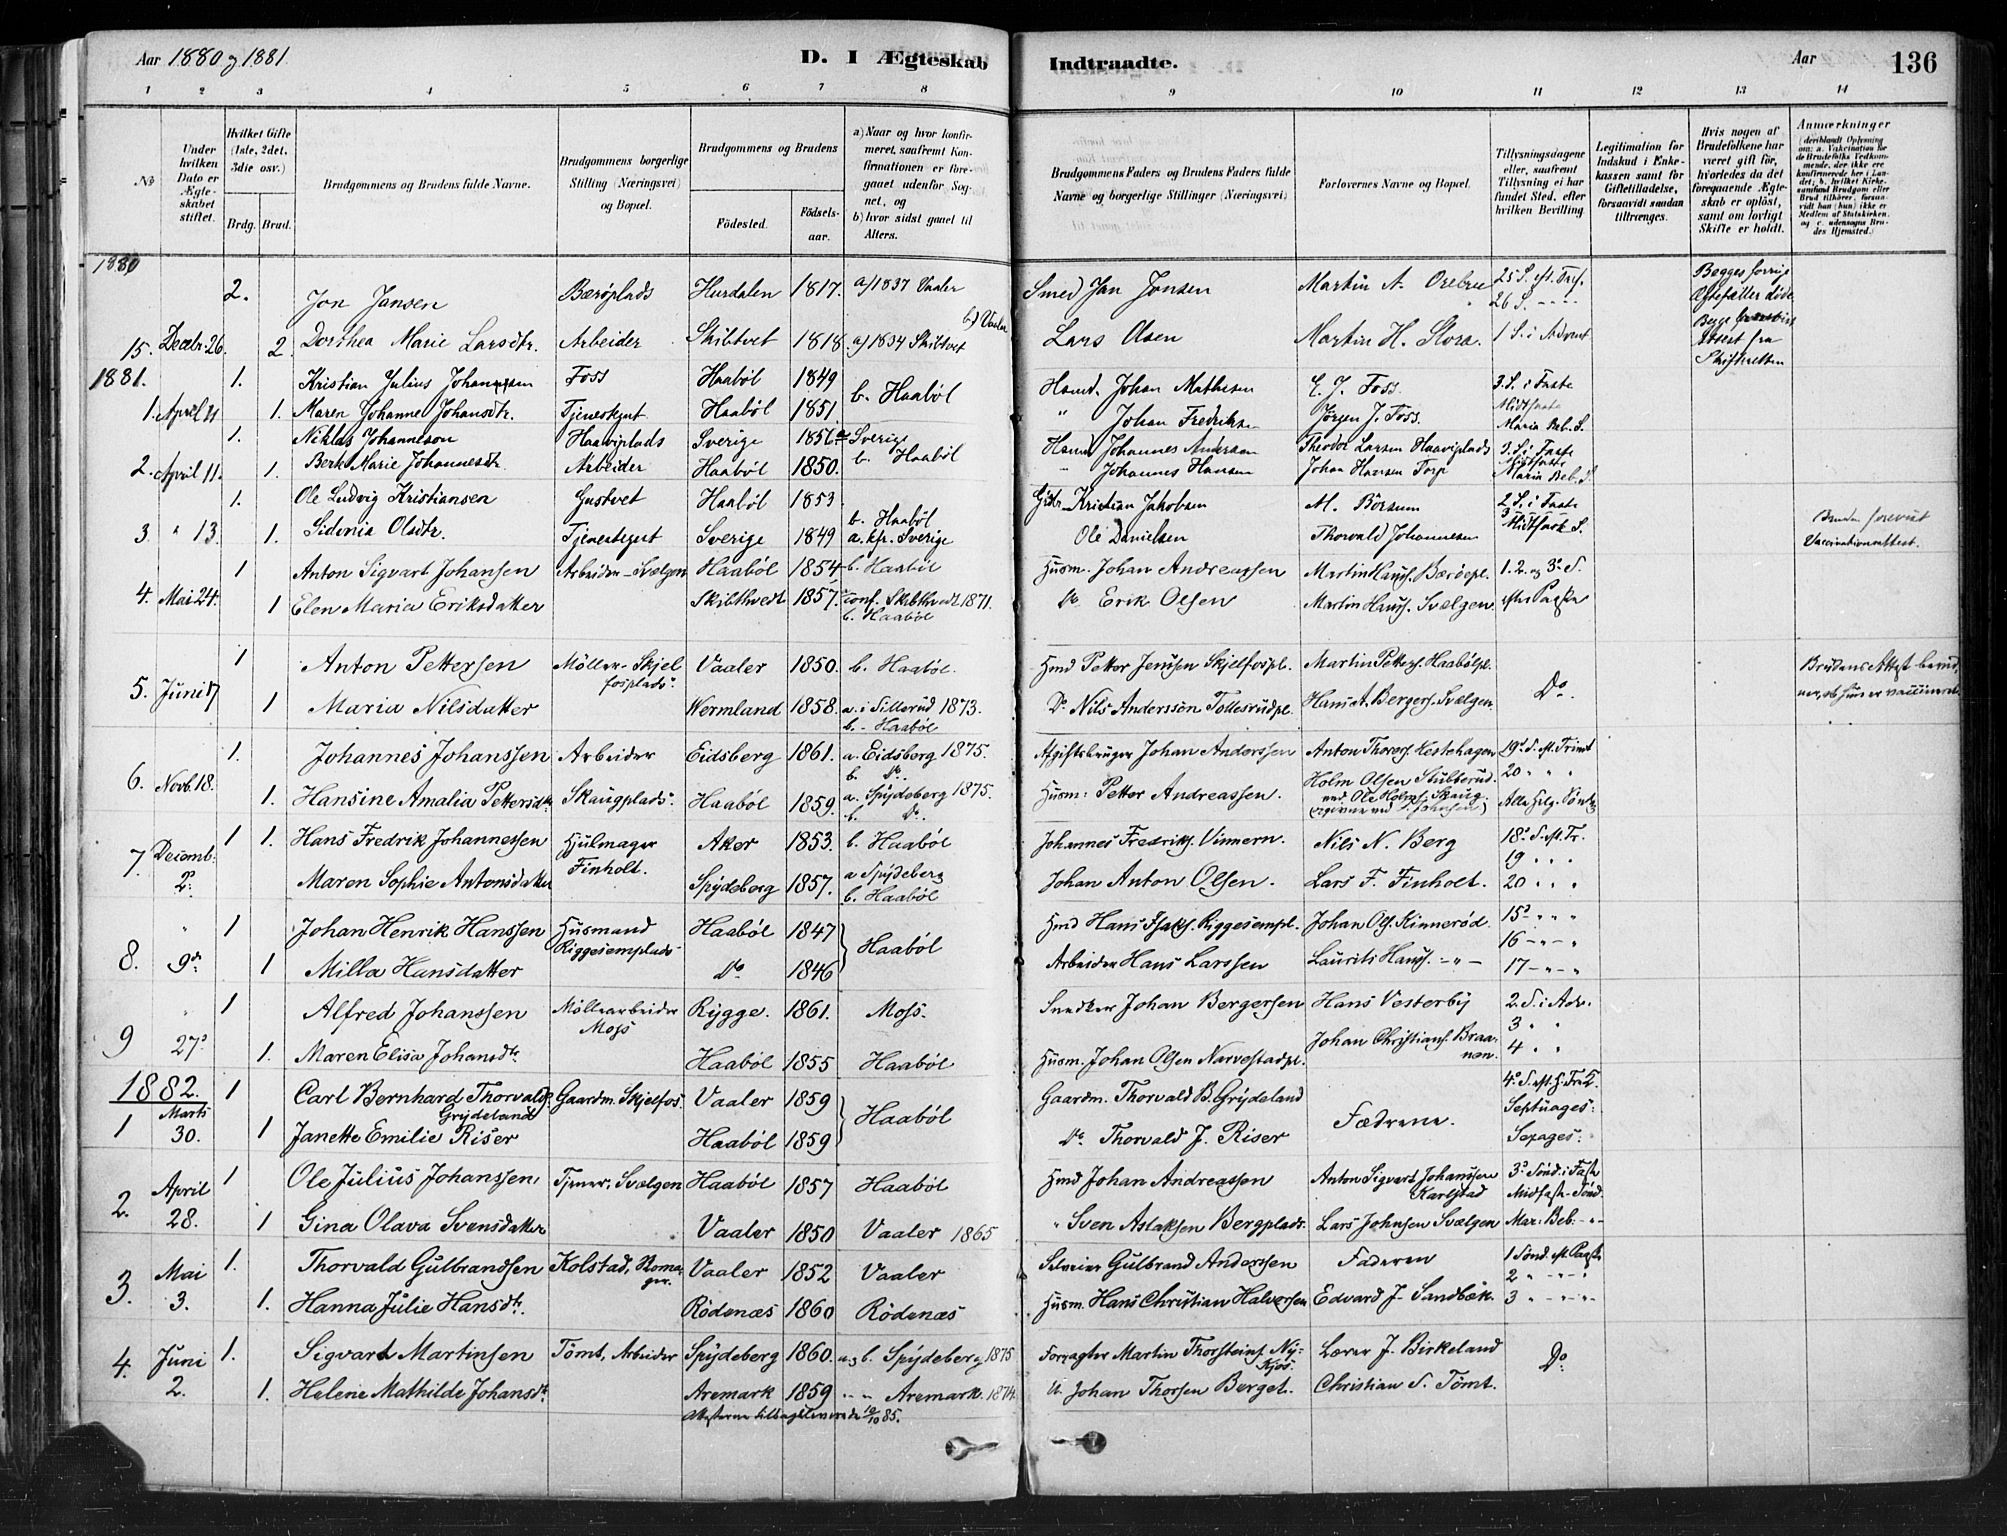 Aar 1880 og 1881.
D. I Ægteskab Indtraadte.
Aar
136
1 2 3 4 5 6 7 8 9 10 11 12 13 14
№
Under hvilken Dato er Ægteskabet stiftet.
Hvilket Gifte (1ste, 2det, 3die osv.)
Brdg. Brud.
Brudgommens og Brudens fulde Navne.
Brudgommens borgerlige Stilling (Næringsvei) og Bopæl.
Brudgommens og Brudens
Fødested. Fødselsaar.
a) Naar og hvor konfirmeret, saafremt Konfirmationen er foregaaet udenfor Sognet, og
b) hvor sidst gaaet til Alters.
Brudgommens Faders og Brudens Faders fulde Navne og borgerlige Stillinger (Næringsvei)
Forlovernes Navne og Bopæl.
Tillysningsdagene eller, saafremt Tillysning ei har fundet Sted, efter hvilken Bevilling.
Legitimation for Indskud i Enkekassen samt for Giftetilladelse, forsaavidt saadan tiltrænges.
Hvis nogen af Brudefolkene har været gift før, hvorledes da det foregaaende Ægteskab er opløst, samt om lovligt Skifte er holdt.
Anmærkninger
1880
2. Jon Jansen Bærøplads Hurdalen 1817. a) 1837 Vaaler Smed Jan Jonsen Martin A. Orebru 25 S. eft. Tref. Begges forrige
b) Vaaler 26 S. Ægtefæller døde.
15. Decbr. 26. 2. Dorthea Marie Larsdtr. Arbeider Skibtvet 1818 a) 1834 Skibtvet Lars Olsen Martin H. Stora. 1 S. i Advent
Attest fra
Skifteretten
1881.
1. Kristian Julius Johannesen Foss Haabøl 1849 b. Haabøl Husmd. Johan Mathisen E. J. Foss. 3. S. i Faste
1. April 11 1. Maren Johanne Johansdtr. Tjenestegut Haabøl 1851 " Johan Fredriksen Jørgen J. Foss. Midtfaste
Maria Beb. S.
1. Niklas Johanneson Haaviplads Sverige 1856 a Sverige Husmd Johannes Andersen Theodor Larsen Haaviplads 3. S. i Faste
2. April 11. 1. Berte Marie Johannesdtr. Arbeider Haabøl 1850. b. Haabøl " Johannes Hansen Johan Hansen Torp Midtfaste
Maria Beb. S.
1. Ole Ludvig Kristiansen Gustvet Haabøl 1853 b. Haabøl Kristian Jakobsen M. Børsum 2 S. i Faste
3 " 13. 1. Sidenia Olsdtr. Tjenestegut Sverige 1849 a. kfr. Sverige Ole Danielsen Thorvald Johannesen Midtfast S. Bruden forevist
Vaccinationsattest.
1 Anton Sigvart Johansen Arbeider-Svælgen Haabøl 1854 b. Haabøl Husm. Johan Andreassen Martin Hans. Bærøepl. 1. 2. og 3. S.
4. Mai 24. 1 Elen Maria Eriksdatter Skibthvedt 1857. conf. Skibthvedt 1871. Do. Erik Olsen Martin Hans. Svælgen. efter Paaske
b. Haabøl
1 Anton Pettersen Møller-Skjel Vaaler 1850. b. Haabøl. Hmd Petter Jensen Skjelfospl. Martin Petters. Haabølpl.
fosplads.
5. Juni 17 1 Maria Nilsdatter Wermland 1858. a. i Sillerud 1873. Do Nils Andersson Tollesrudpl. Hans A. Bergers. Svælgen. Do.
b. - Haabøl
1. Johannes Johanssen Arbeider Eidsberg 1861. a. Eidsberg 1875. Afgiftsbruger Johan Anderssen Anton Thores. Hestehagen 19. S. eft. Trinit
b. Do. Holm Olsen Stubberud. 20 " "
6. Novb. 18. 1. Hansine Amalia Pettersdtr. Skaugplads. Haabøl 1859. a. Spydeberg 1875. Husm. Petter Andreassen. Alle Helg. Sønd.
b. Do.
7. Decemb: 2. 1 1. Hans Fredrik Johannessen Hjulmager Aker 1853. b. Haabøl Johannes Fredriks. Vinnern. Nils N. Berg 18. S. eft. Tr.
Finholt. 19 " "
Maren Sophie Antonsdatter Spydeberg 1857. a Spydeberg Johan Anton Olsen. Lars F. Finholt. 20 " "
b. Haabøl
" 1 Johan Henrik Hanssen Husmand Haabøl 1847 Haabøl Hmd Hans Isaks. Riggesempl. Johan Ols. Kinnerød. 15. " "
Riggesemplads 16 - " - "
8. 9de 1 Milla Hansdatter Do 1846 Arbeider Hans Larssen Laurits Hans. - " - 17 - " - "
" 1 Alfred Johanssen Møllearbeider Rygge. 1861. Moss. Snedker Johan Bergersen Hans Vesterby 2. S. i Adv.
Moss 3 " "
9 27. 1. Maren Elisa Johansdtr. Haabøl 1855 Haabøl Husm. Johan Olsen Narvestadpl. Johan Christians. Braanan. 4 " "
1882.
1 Carl Bernhard Thorvalds. Gaardm. Skjelfos. Vaaler 1859 Haabøl Gaardm. Thorvald B. Grydeland Fædrene. 4. S. eft. H. Tre K.
Marts Grydeland Septuages:
1 30. 1 Janette Emilie Riser Haabøl 1859 Do Thorvald J. Riser Sexages:
1 Ole Julius Johanssen, Tjener, Svælgen Haabøl 1857 Haabøl Hmd Johan Andreassen Anton Sigvart Johanssen 3. Sønd. i Faste
April Karlstad Midfast-Sønd.
2. 28. 1 Gina Olava Svensdatter Vaaler 1850 Vaaler 1865 " Sven Aslaksen Bergplads. Lars Johnsen Svælgen Mar. Beb. - " -
Mai 1. Thorvald Gulbrandsen Kolstad, Vaaler 1852 Vaaler Selveier Gulbrand Anderssen Faderen 1 Sønd. eft. Paaske
2 " - " - "
3. 3. 1. Hanna Julie Hansdtr. Rødenæs 1860 Rødenæs Husm. Hans Christian Halvorsen Edvard J. Sandbæk. 3 " - " - "
4. Juni 1. Sigvart Martinsen Tømt, Arbeider Spydeberg 1860. a og b. Spydeberg 1875 Forpagter Martin Thorsteins. Ny- Lærer J. Birkeland Do
Kjøs.
2. 1. Helene Mathilde Johansdtr. Aremark 1859 " " Aremark. 1874. Johan Thorsen Berget. Christian S. Tømt.
Attesterne tilbageleverede 19/10 85.